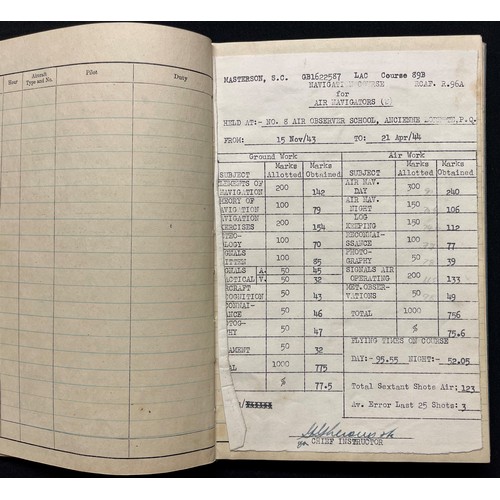 Hour Aircraft Type and No. Pilot Duty
MASTERSON, S.C. GB1622587 LAC Course 89B
NAVIGATION COURSE RCAF. R.96A
for
AIR NAVIGATORS
HELD AT:- NO. 8 AIR OBSERVER SCHOOL, ANCIENNE P.Q.
FROM: 15 Nov/43 TO: 21 Apr/44
Ground Work Air Work
SUBJECT Marks Allotted Marks Obtained SUBJECT Marks Allotted Marks Obtained
LEMENTS OF NAVIGATION 200 142 AIR NAV. DAY 300 240
HEORY OF AVIGATION 100 79 AIR NAV. NIGHT 150 106
AVIGATION XERCISES 200 154 LOG KEEPING 150 112
TEO- OLOGY 100 70 RECONNAI- SSANCE 100 77
GNALS ITTEN 100 85 PHOTO- GRAPHY 50 39
GNALS A. 50 45 SIGNALS AIR OPERATING 200 133
ACTICAL V. 50 32
RCRAFT COGNITION 50 43 MET.OBSER- VATIONS 50 49
CONNAI- ANCE 50 46 TOTAL 1000 756
OTOG- HY 50 47 % 75.6
AMENT 50 32 FLYING TIMES ON COURSE
AL 1000 775 DAY:- 95.55 NIGHT:- 52.05
% 77.5 Total Sextant Shots Air: 123
Av. Error Last 25 Shots: 3
CHIEF INSTRUCTOR